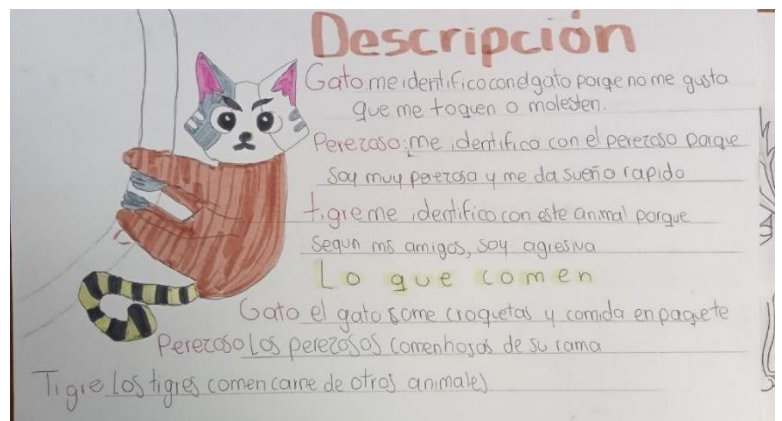 Descripción
Gato: me identifico con el gato porqe no me gusta
que me toquen o molesten.
Perezoso: me identifico con el perezoso porque
Soy muy perezosa y me da sueño rapido
tigre me identifico con este animal porque
Segun mis amigos, soy agresiva
Lo que comen
Gato el gato come croquetas y comida en paquete
Perezoso Los perezosos comen hojas de su rama
Tigre Los tigres comen carne de otros animales